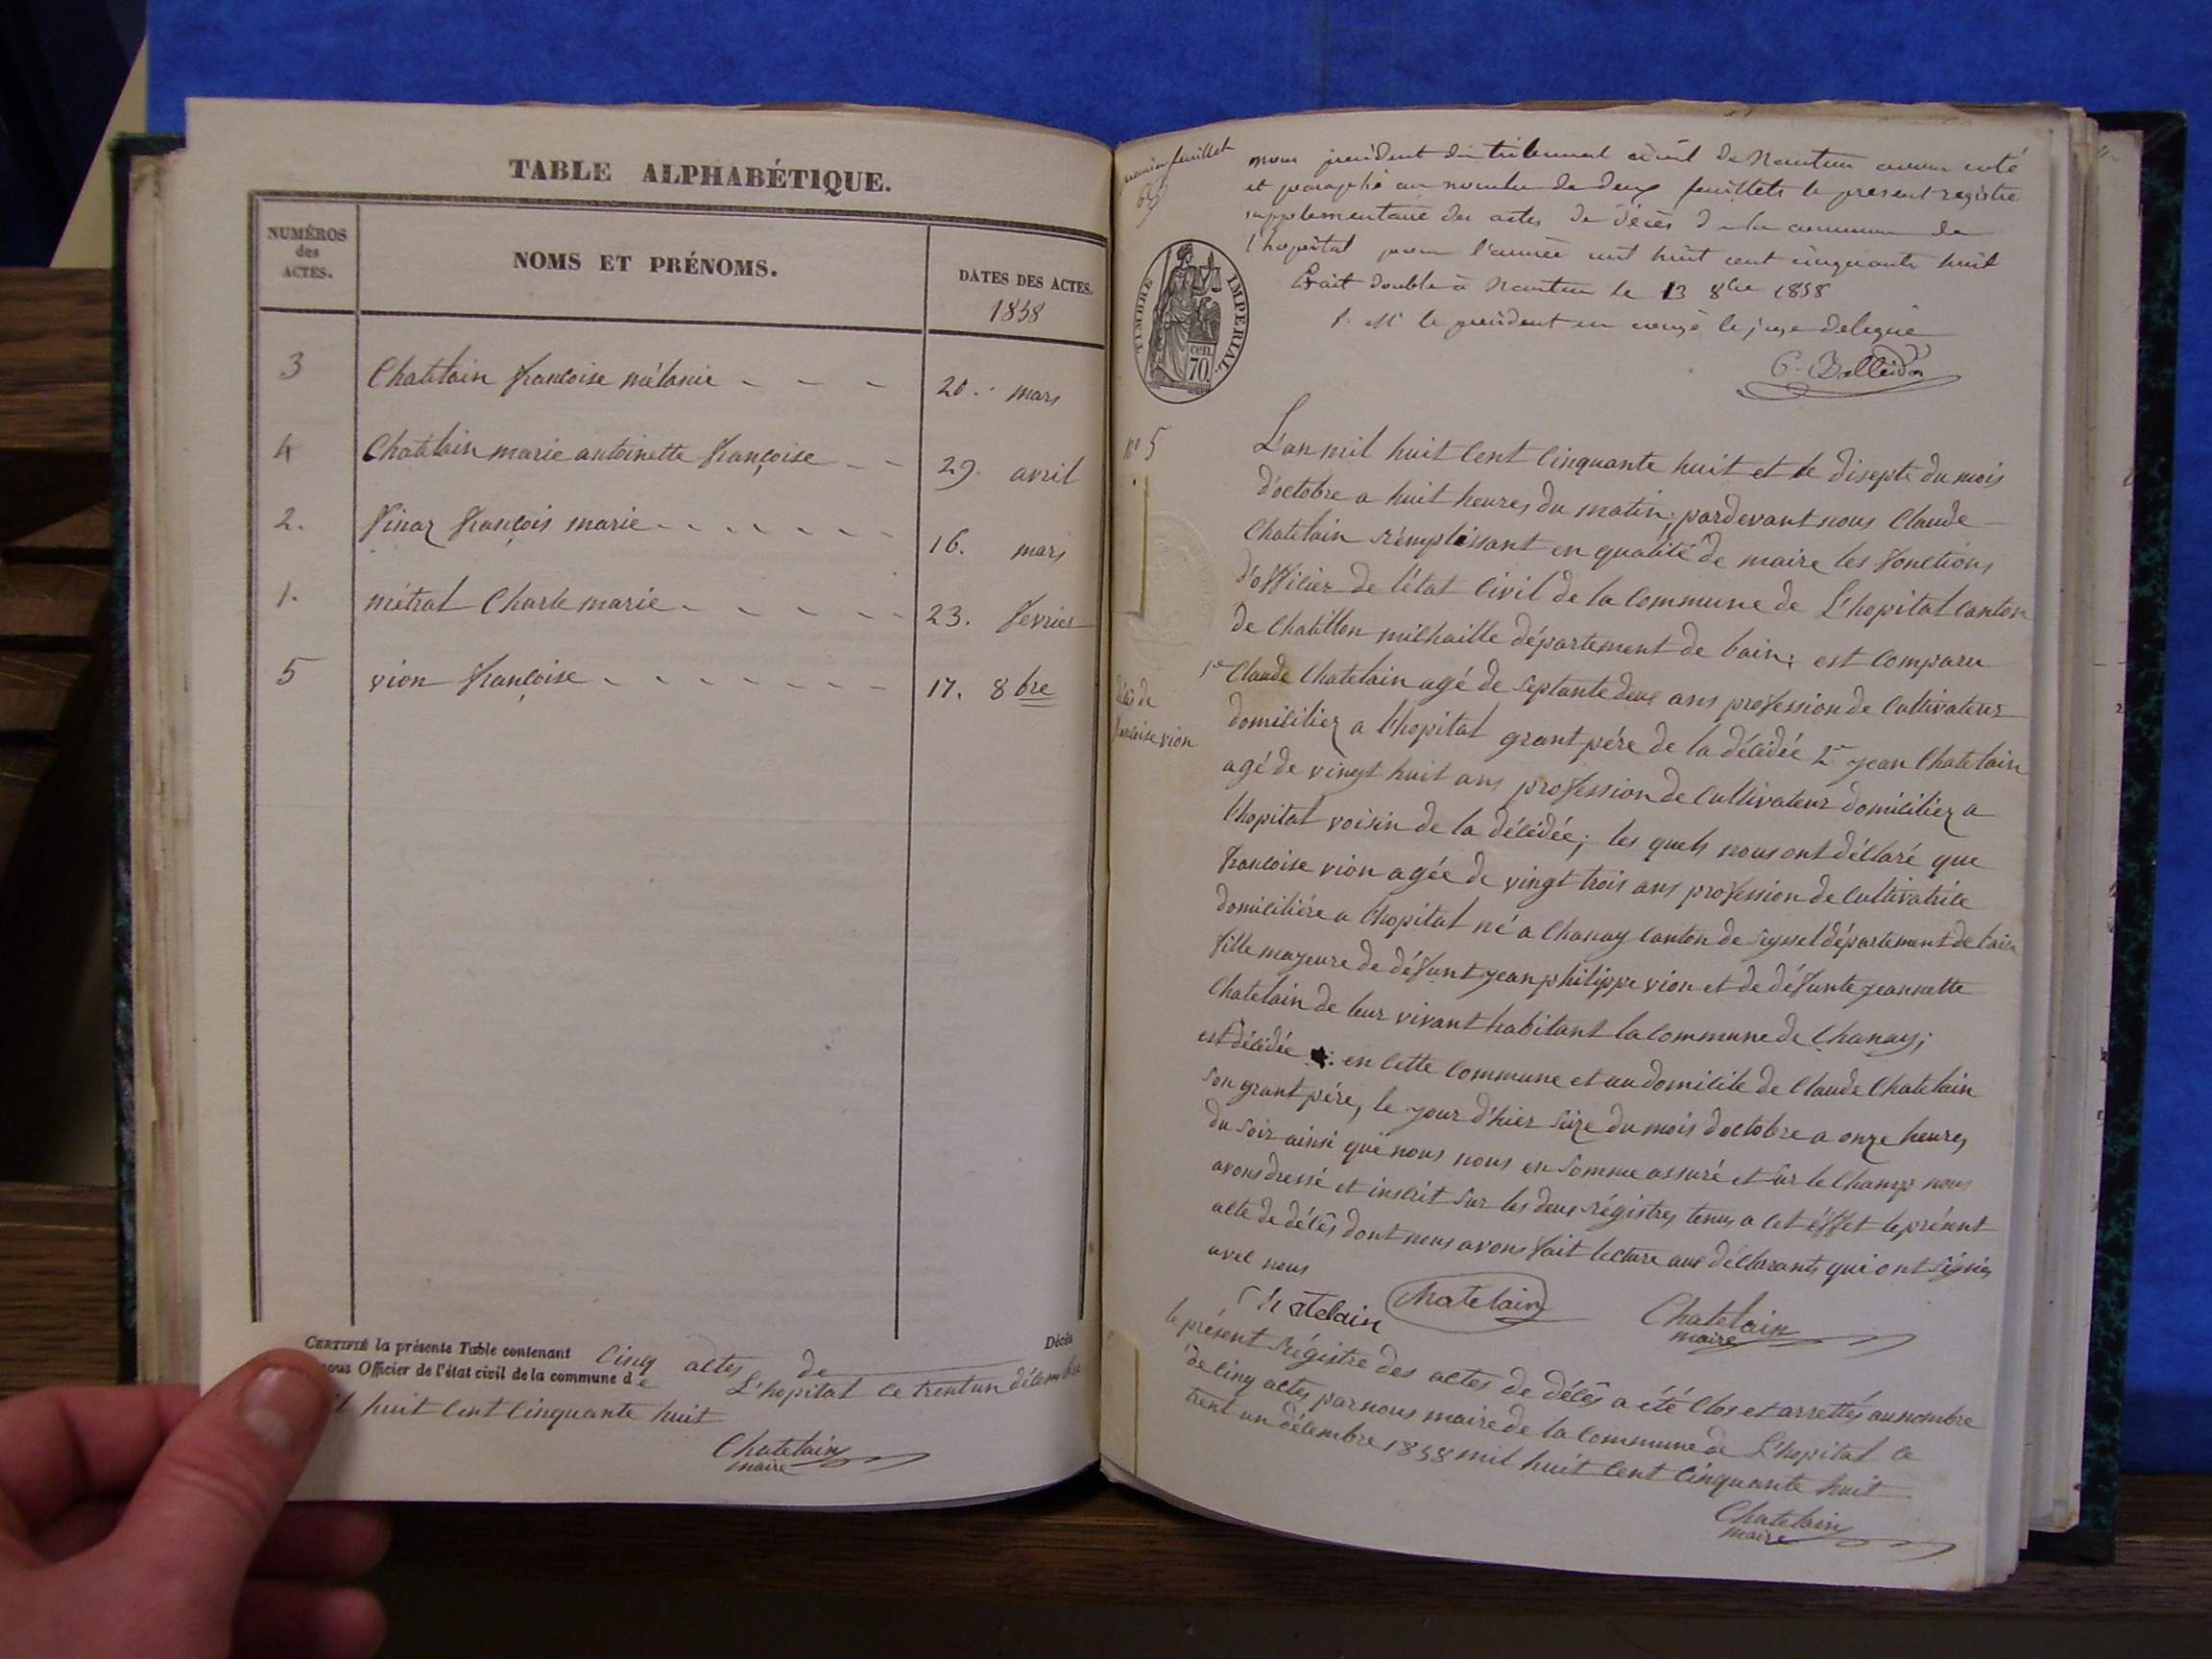 TABLE ALPHABÉTIQUE.
NUMÉROS
des
ACTES.
NOMS ET PRÉNOMS.
DATES DES ACTES.
1858
3 Chatelain francoise mélanie - - - 20. mars
4 Chatelain marie antoinette françoise - - 29. avril
2. Finaz françois marie - - - - - - 16. mars
1. métral Charle marie - - - - - 23. fevrier
5 vion françoise - - - - - - - 17. 8bre
CERTIFIÉ la présente Table contenant Cinq actes de Décès
nous Officier de l'état civil de la commune de L'hopital ce trentun décembre
huit Cent Cinquante huit
Chatelain
maire
premier feuillet
nous président du tribunal civil de Nantua avons coté
et paraphé au nombre de deux feuillets le present registre
supplementaire des actes de décès de la commune de
l'hopital pour l'année mil huit cent cinquante huit
Fait double à Nantua le 13 8bre 1858
P. Mr le president en congé le juge delegué
TIMBRE IMPÉRIAL
cen.
70.
n° 5
L'an mil huit Cent Cinquante huit et le disepte du mois
d'octobre a huit heures du matin, pardevant nous Claude
Chatelain rémplissant en qualité de maire les fonctions
d'officier de l'état Civil de la Commune de L'hopital Canton
de Chatillon michaille département de lain; est Comparu
1° Claude Chatelain agé de Septante deux ans profession de Cultivateur
domicilier a l'hopital grant pére de la décédée 2° jean Chatelain
agé de vingt huit ans profession de Cultivateur domicilier a
l'hopital voisin de la décédée; les quels nous ont déclaré que
francoise vion agée de vingt trois ans profession de Cultivatrice
domiciliére a l'hopital né a Chanay Canton de Seyssel département de lain
fille mayeure de défunt jean philippe vion et de défunte jeannette
Chatelain de leur vivant habitant la Commune de Chanay;
est décédée en Cette Commune et au domicile de Claude Chatelain
son grant pére, le jour d'hier Seize du mois doctobre a onze heures
du Soir ainsi que nous nous en Somme assuré et Sur le Champ nous
avons dressé et inscrit Sur les deux régistres tenus a Cet éffet le présent
acte de décès dont nous avons fait lecture aux déclarants qui ont Signés
avec nous
décès de
francoise vion
Chatelain Chatelain Chatelain
maire
le présent régistre des actes de décès a été Clos et arrettés au nombre
de Cinq actes par nous maire de la Commune de L'hopital Ce
trent un décembre 1858 mil huit Cent Cinquante huit.
Chatelain
maire